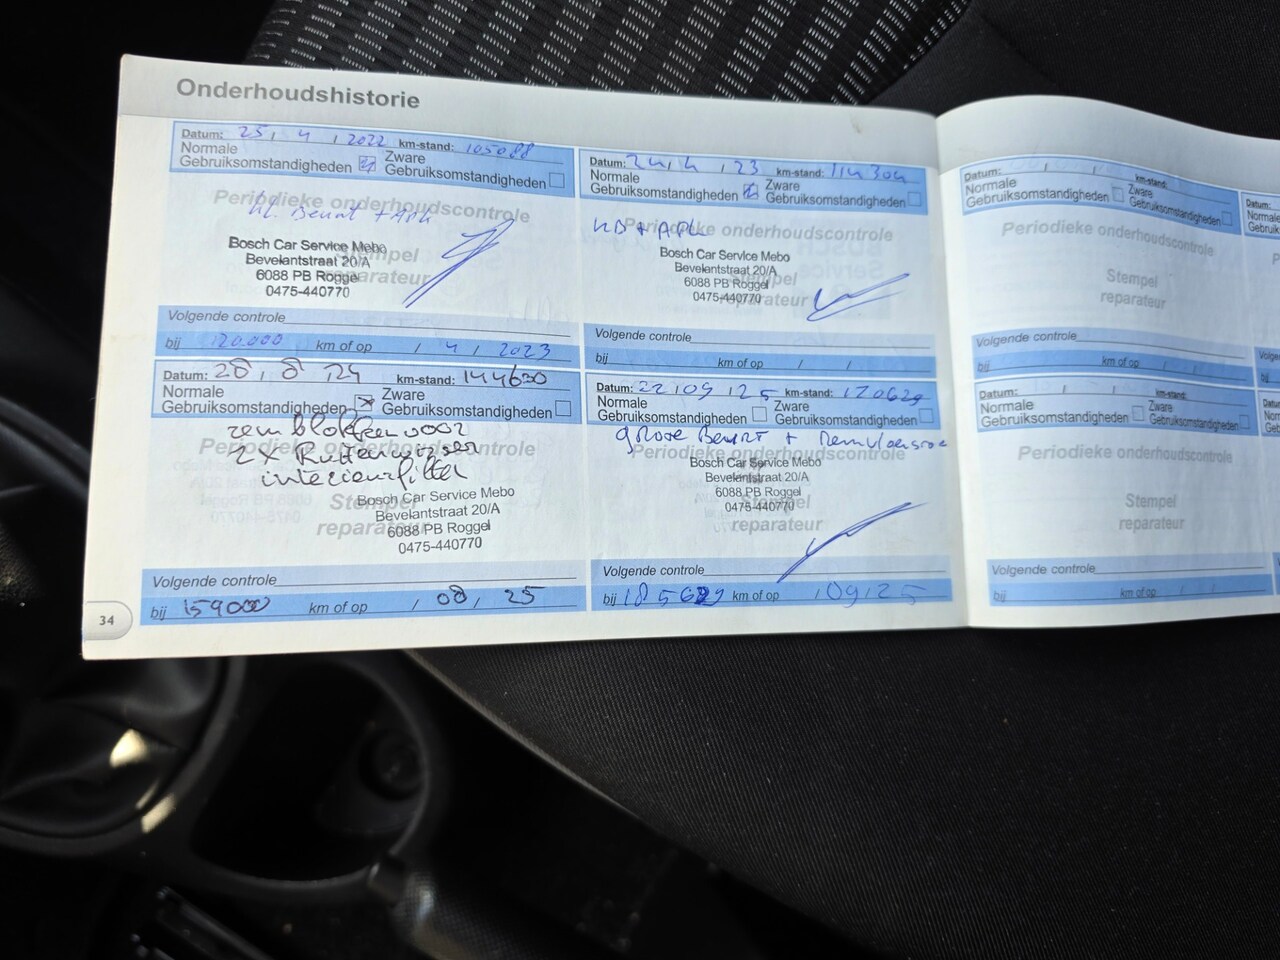 Onderhoudshistorie
Datum: 25, 4, 2022 km-stand: 105088
Normale
Gebruiksomstandigheden
Zware
Gebruiksomstandigheden
Periodieke onderhoudscontrole
kl. Beurt + APK
Stempel
reparateur
Bosch Car Service Mebo
Bevelantstraat 20/A
6088 PB Roggel
0475-440770
Volgende controle
bij 120.000 km of op / 4 / 2023
Datum: 24, 4, 23 km-stand: 114304
Normale
Gebruiksomstandigheden
Zware
Gebruiksomstandigheden
Periodieke onderhoudscontrole
KB + APK
Stempel
reparateur
Bosch Car Service Mebo
Bevelantstraat 20/A
6088 PB Roggel
0475-440770
Volgende controle
bij km of op / /
Datum: 28, 8, 24 km-stand: 144630
Normale
Gebruiksomstandigheden
Zware
Gebruiksomstandigheden
Periodieke onderhoudscontrole
remblokken voor
2x Ruitenwissers
interieurfilter
Stempel
reparateur
Bosch Car Service Mebo
Bevelantstraat 20/A
6088 PB Roggel
0475-440770
Volgende controle
bij 159000 km of op / 08, 25
Datum: 22, 09, 25 km-stand: 170629
Normale
Gebruiksomstandigheden
Zware
Gebruiksomstandigheden
grote Beurt + Remvloeistof
Periodieke onderhoudscontrole
Stempel
reparateur
Bosch Car Service Mebo
Bevelantstraat 20/A
6088 PB Roggel
0475-440770
Volgende controle
bij 185629 km of op / 09, 25
34
Datum: / / km-stand:
Normale
Gebruiksomstandigheden
Zware
Gebruiksomstandigheden
Periodieke onderhoudscontrole
Stempel
reparateur
Volgende controle
bij km of op / /
Datum: / / km-stand:
Normale
Gebruiksomstandigheden
Zware
Gebruiksomstandigheden
Periodieke onderhoudscontrole
Stempel
reparateur
Volgende controle
bij km of op / /
Datum: